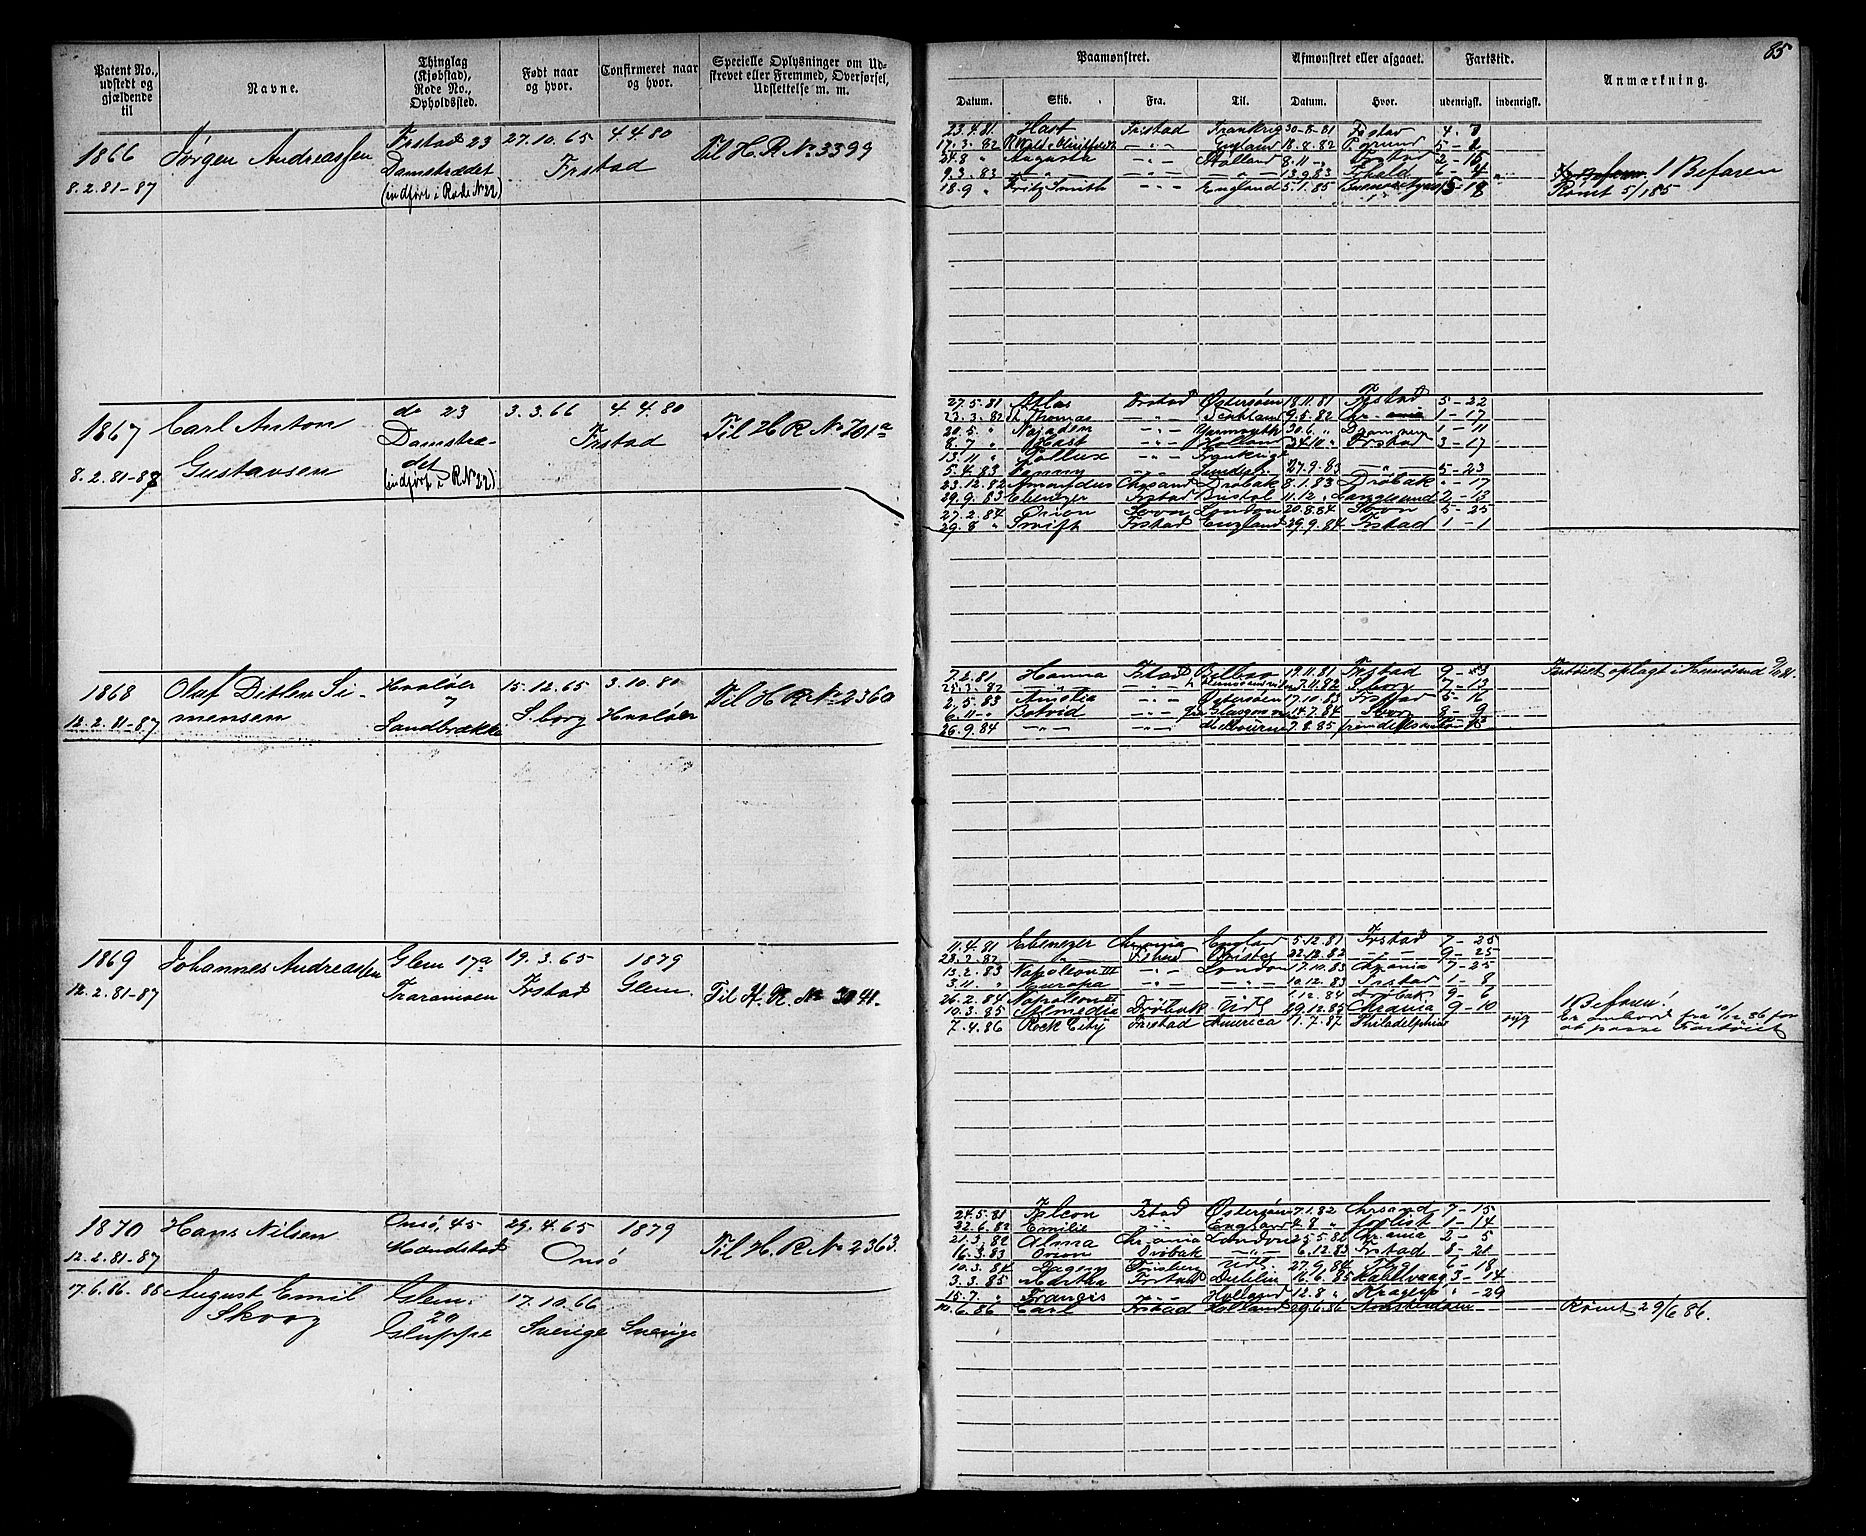 85
Patent No., udstedt og gjældende til
Navne.
Thinglag (Kjøbstad), Rode No., Opholdssted.
Født naar og hvor.
Confirmeret naar og hvor.
Specielle Oplysninger om Udskrevet eller Fremmed, Overførsel, Udslettelse m. m.
Paamønstret.
Afmønstret eller afgaaet.
Fartstid.
Anmærkning.
Datum. Skib. Fra. Til. Datum. Hvor. udenrigsk. indenrigsk.
1866 Jørgen Andreassen Frstad 23 27.10.65 4.4.80 Til H. R. No 3399
8.2.81-87 Damstrædet Frstad
(indført i Rode No 22)
23.4.81 Hast Fristad Frankrig 30-8-81 Frstad 4-7
17.3.82 England 18.8.82 5-1
24.8 " Augusta -"- Holland 8.11 -"- Frstad 2-15
9.3.83 -"- -"- -"- 13.9.83 Frhald 6-4
18.9 " Fritz Smith -"- England 5.1.85 15-18
1 Befaren
Rømt 5/1 85
1867 Carl Anton do 23 3.3.66 4.4.80 Til H R No 701a
Gustavsen Damstrædet Frstad
8.2.81-87 (indført i R No 22)
27.5.81 Atlas Frstad Østersøen 18.11.81 Frstad 5-22
23.3.82 Thomas -"- 9.5.82 Chr.ania 1-17
20.5 " Najaden -"- Yarmouth 30.6 " Drammen 1-11
8.7 " Hast -"- Holland 24.10 " Frstad 3-17
13.11 " Pollux -"- Frankrige
5.4.83 Fanny -"- 27.9.83 -"- 5-23
23.12.82 Amandus Chrsand Drøbak 8.1.83 Drøbak "-17
29.9.83 Ebenezer Frstad Bristol 11.12 " Langesund 2-13
27.2.84 Orion London 20.8.84 5-25
29.8 " Swift Frstad England 29.9.84 Frstad 1-1
1868 Olaf Ditlev Simensen Hvaløer 15.12.65 3.10.80 Til H R No 2360
12.2.81-87 Sandbrække S.borg Hvaløer
7.2.81 Hanna Frstad Bilbao 19.11.81 Frstad 9-13
25.3.82 -"- -"- 7.11.82 S.borg 7-13
2.5.83 Amalia -"- Østersøen 17.10.83 Frstad 5-16
6.11 " Botvid -"- Glasgow 14.7.84 8-9
26.9.84 -"- -"- Melbourne 7.8.85
1869 Johannes Andreassen Glem 17a 19.3.65 1879 Til H. R. No 3041.
12.2.81-87 Traramoen Frstad Glem.
11.4.81 Ebenezer Chr.ania England 5.12.81 Frstad 7-25
28.2.82 -"- Frstad Bristol 22.12.82 -"- 9-25
13.2.83 Napoleon III -"- London 7.10.83 Chr.ania 7-25
3.11 " Europa -"- 10.12.83 Frstad 1-8
26.2.84 Napoleon III -"- 1.12.84 Drøbak 9-6
10.3.85 Almedia Drøbak Uds. 19.12.85 Chr.ania 9-10
7.4.86 Rock City Frstad America 1.7.87 Philadelphia syg
1 Befaren!
Er ombord fra 10/12 86 for at passe Fartøiet
1870 Hans Nilsen Onsø, 45 29.4.65 1879 Til H. R. No 2363.
12.2.81-87 Mandstad Onsø
24.5.81 Falcon Frstad Østersøen 7.1.82 Chrsand 7-15
22.6.82 Emilie -"- England 4.8 " forlist 1-14
21.3.82 Alma Chr.ania London 25.5.82 Chr.ania 2-5
16.3.83 Orion Drøbak -"- 6.12.83 Frstad 8-21
10.3.84 Dagen Tønsberg Uds. 27.9.84 6-18
3.3.85 Martha Frstad Dublin 16.6.85 3-14
15.7 " Francis -"- Holland 12.8 " Kragerø "-29
17.6.86-85 August Emil Skoog Glem. 20 Gluppe 17.10.66 Sverige Sverige
10.6.86 Carl Frstad Holland 29.6.86 Amsterdam
Rømt 29/6 86.